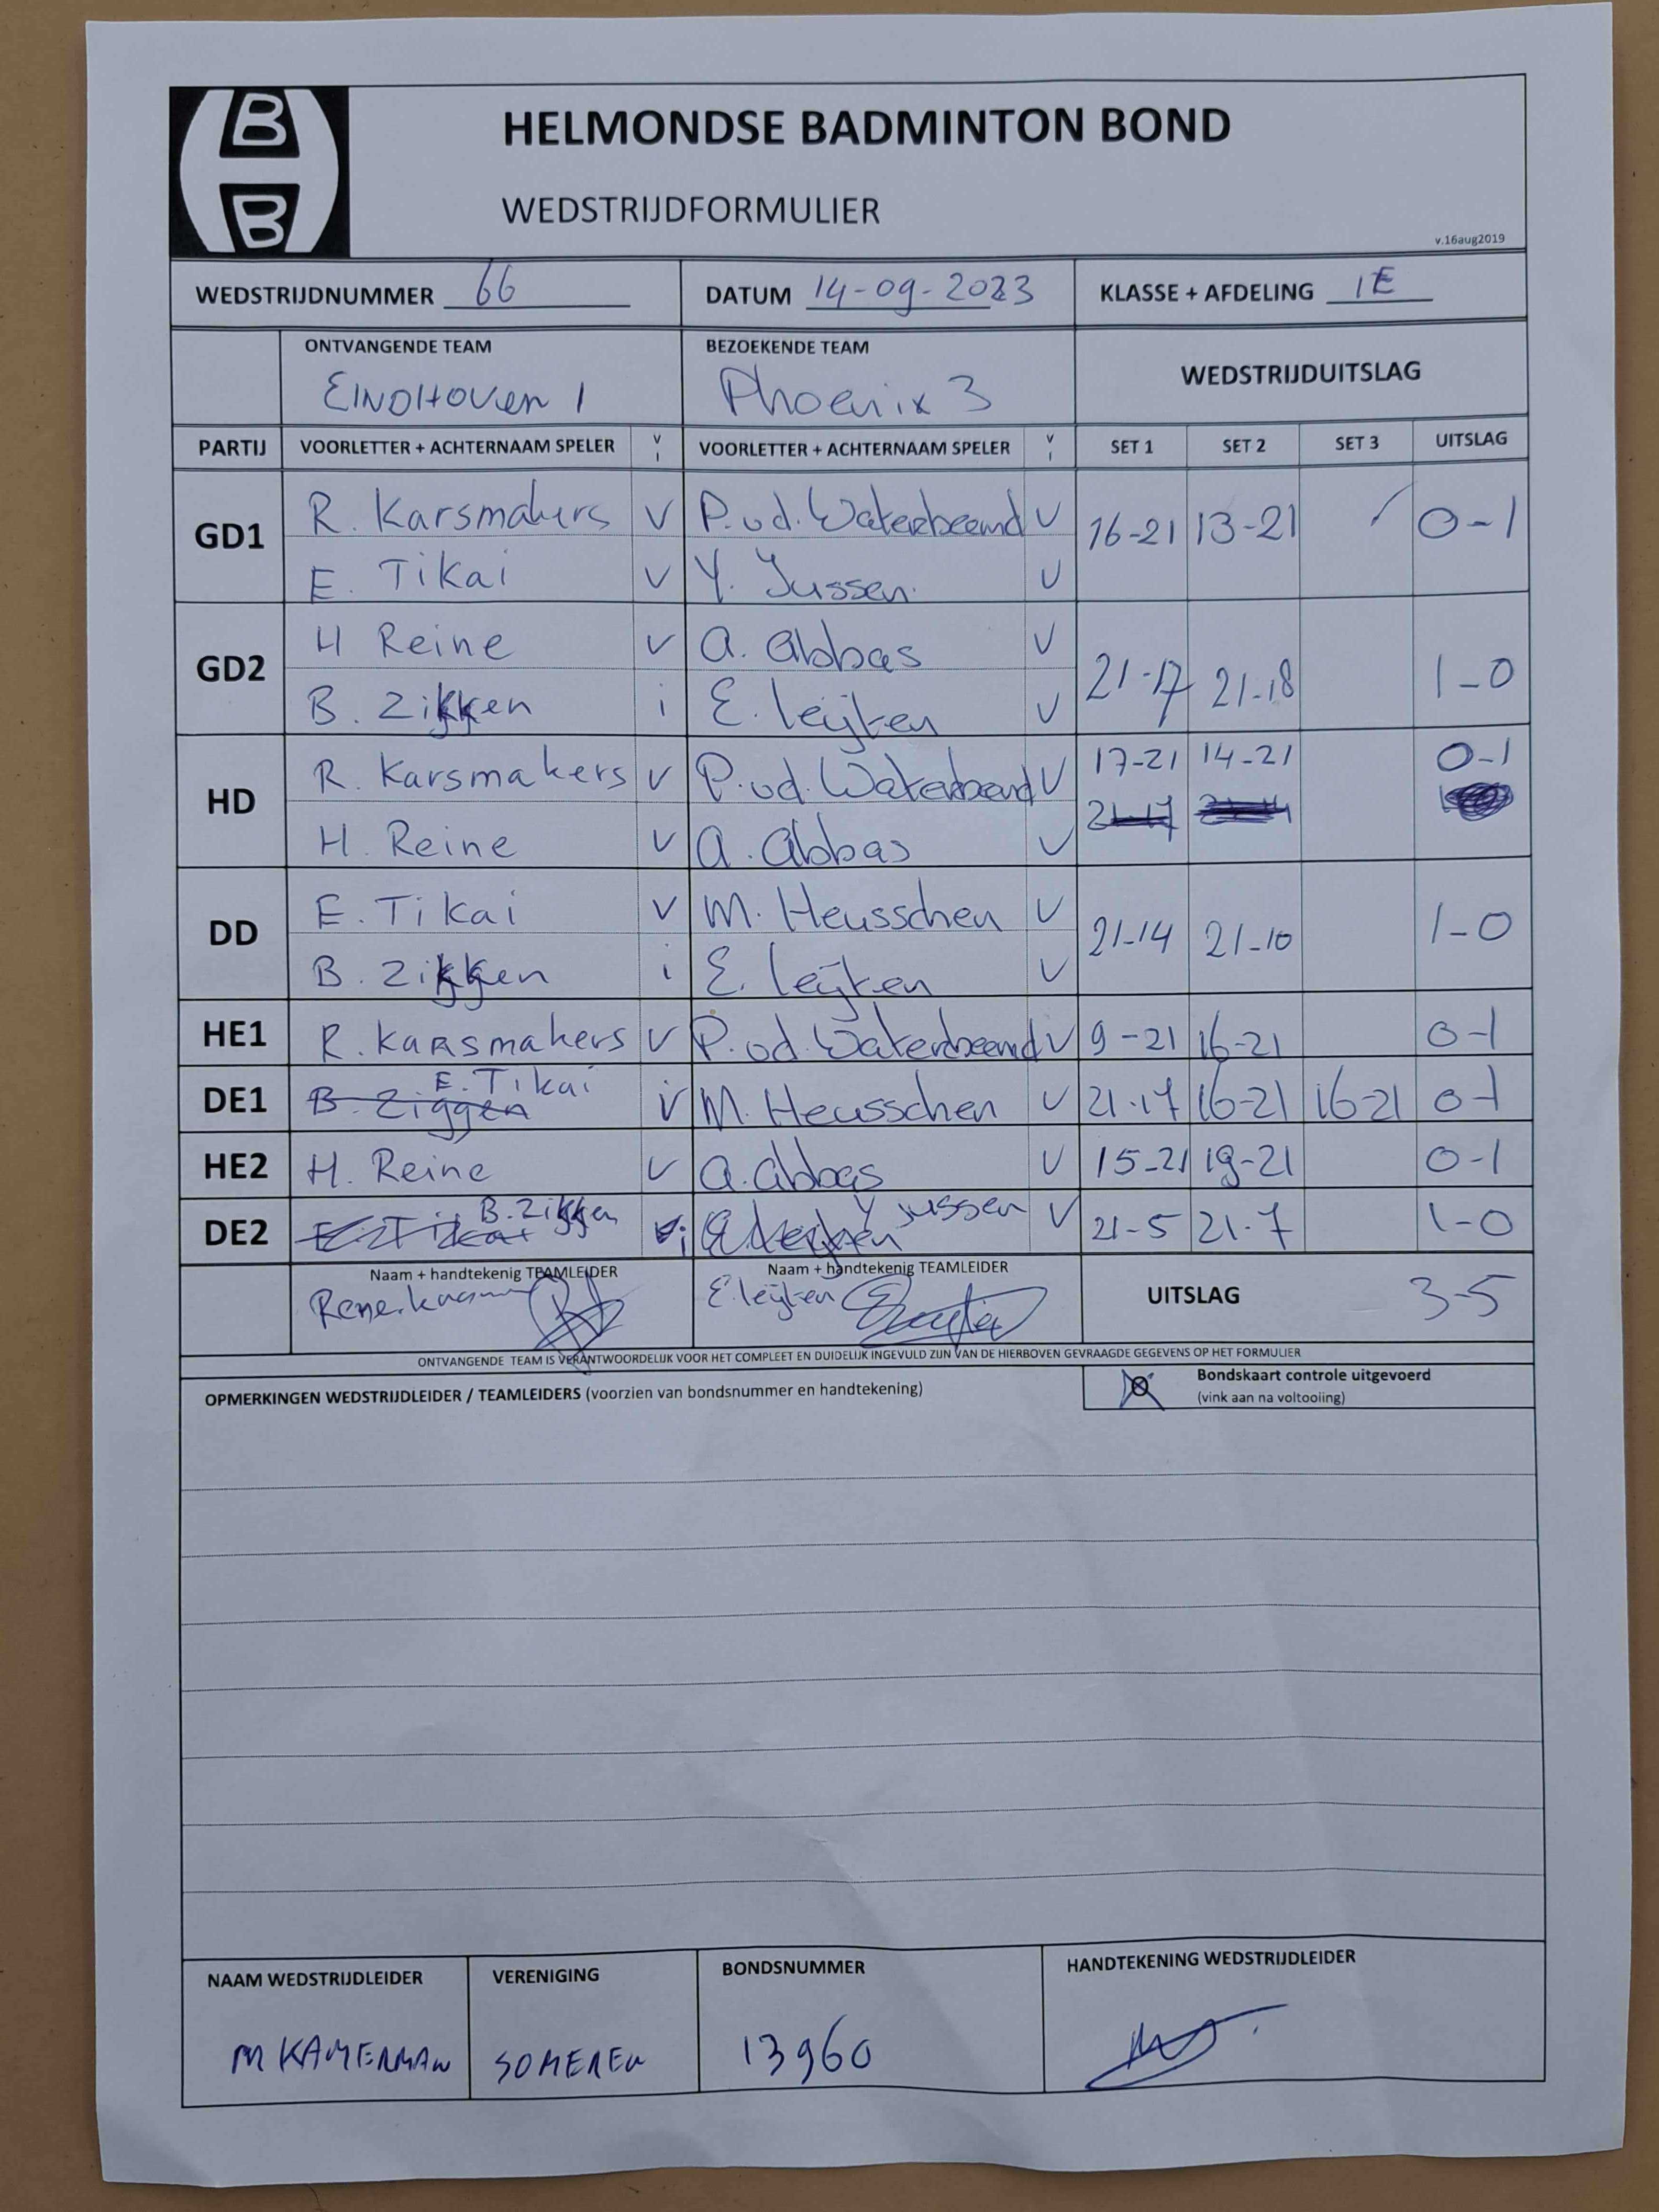 B
B
HELMONDSE BADMINTON BOND
WEDSTRIJDFORMULIER
v.16aug2019
WEDSTRIJDNUMMER 66 DATUM 14-09-2023 KLASSE + AFDELING 1E
ONTVANGENDE TEAM BEZOEKENDE TEAM WEDSTRIJDUITSLAG
EINDHOVEN 1 Phoenix 3
PARTIJ VOORLETTER + ACHTERNAAM SPELER V I VOORLETTER + ACHTERNAAM SPELER V I SET 1 SET 2 SET 3 UITSLAG
GD1 R. Karsmakers V P.vd.Waterbeemd V 16-21 13-21 0-1
E. Tikai V Y. Jussen. V
GD2 H Reine V A. Abbas V 21-17 21-18 1-0
B. Zikken i E. Leijten V
HD R. Karsmakers V P.vd.Waterbeemd V 17-21 14-21 0-1
H. Reine V A. Abbas V 21-17
DD E. Tikai V M. Heusschen V 21-14 21-10 1-0
B. Zikken i E. Leijten V
HE1 R. Karsmakers V P.vd.Waterbeemd V 9-21 16-21 0-1
DE1 B. Ziggen E. Tikai V M. Heusschen V 21-17 16-21 16-21 0-1
HE2 H. Reine V A. Abbas V 15-21 19-21 0-1
DE2 E. Tikai B. Zikken i E. Leijten Y Jussen V 21-5 21-7 1-0
Naam + handtekenig TEAMLEIDER Naam + handtekenig TEAMLEIDER UITSLAG 3-5
Rene E. Leijten
ONTVANGENDE TEAM IS VERANTWOORDELIJK VOOR HET COMPLEET EN DUIDELIJK INGEVULD ZIJN VAN DE HIERBOVEN GEVRAAGDE GEGEVENS OP HET FORMULIER
OPMERKINGEN WEDSTRIJDLEIDER / TEAMLEIDERS (voorzien van bondsnummer en handtekening)
Bondskaart controle uitgevoerd
(vink aan na voltooiing)
NAAM WEDSTRIJDLEIDER VERENIGING BONDSNUMMER HANDTEKENING WEDSTRIJDLEIDER
M KAMERMAN SOMEREN 13960